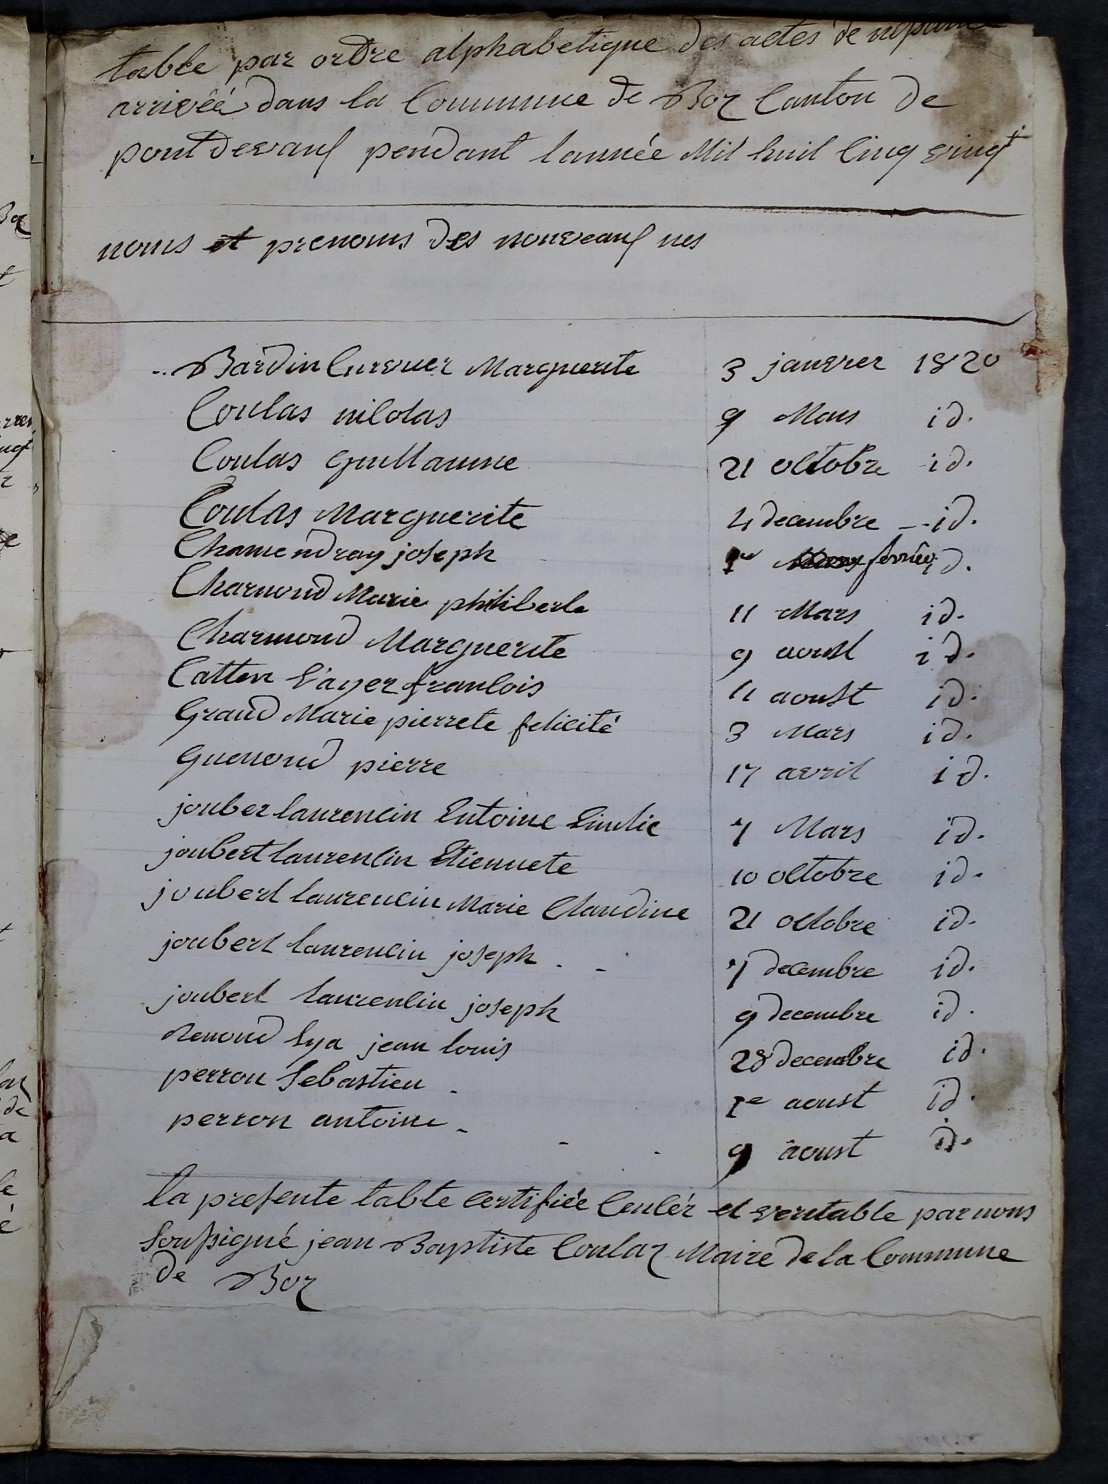 table par ordre alphabetique des actes de
arrivéé dans la Commune de Boz Canton de
pontdevaux pendant lannée Mil huit Cinq vingt
noms et prenoms des nouveaux nes
Bardin Curvuer Marguerite 3 janvier 1820
Coulas nicolas 9 Mars id.
Coulas guillaume 21 octobre id.
Coulas Marguerite 4 decembre id.
Chamendray joseph 1er fevrier id.
Charnond Marie philiberte 11 Mars id.
Charmond Marguerite 9 aoust id.
Catten Vayer francois 11 aoust id.
grand Marie pierrete felicité 3 Mars id.
guenond pierre 17 avril id.
jouber laurencin Entoine Emilie 7 Mars id.
joubert laurencin Etiennete 10 octobre id.
joubert laurencin Marie Claudine 21 octobre id.
joubert laurencin joseph 7 decembre id.
joubert laurencin joseph 9 decembre id.
Renoud lya jean louis 28 decembre id.
perron Sebastien 1e aoust id.
perron antoine 9 aoust id.
la presente table certifiée et veritable par nous
Soussigné jean Baptiste Coulaz Maire de la Commune
de Boz